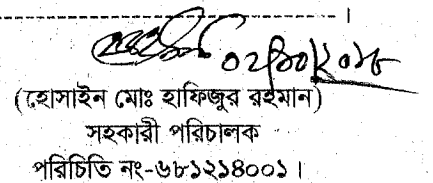 ০২/১০/২০১৮
(হোসাইন মোঃ হাফিজুর রহমান)
সহকারী পরিচালক
পরিচিতি নং-৬৮১২১৪০০১।